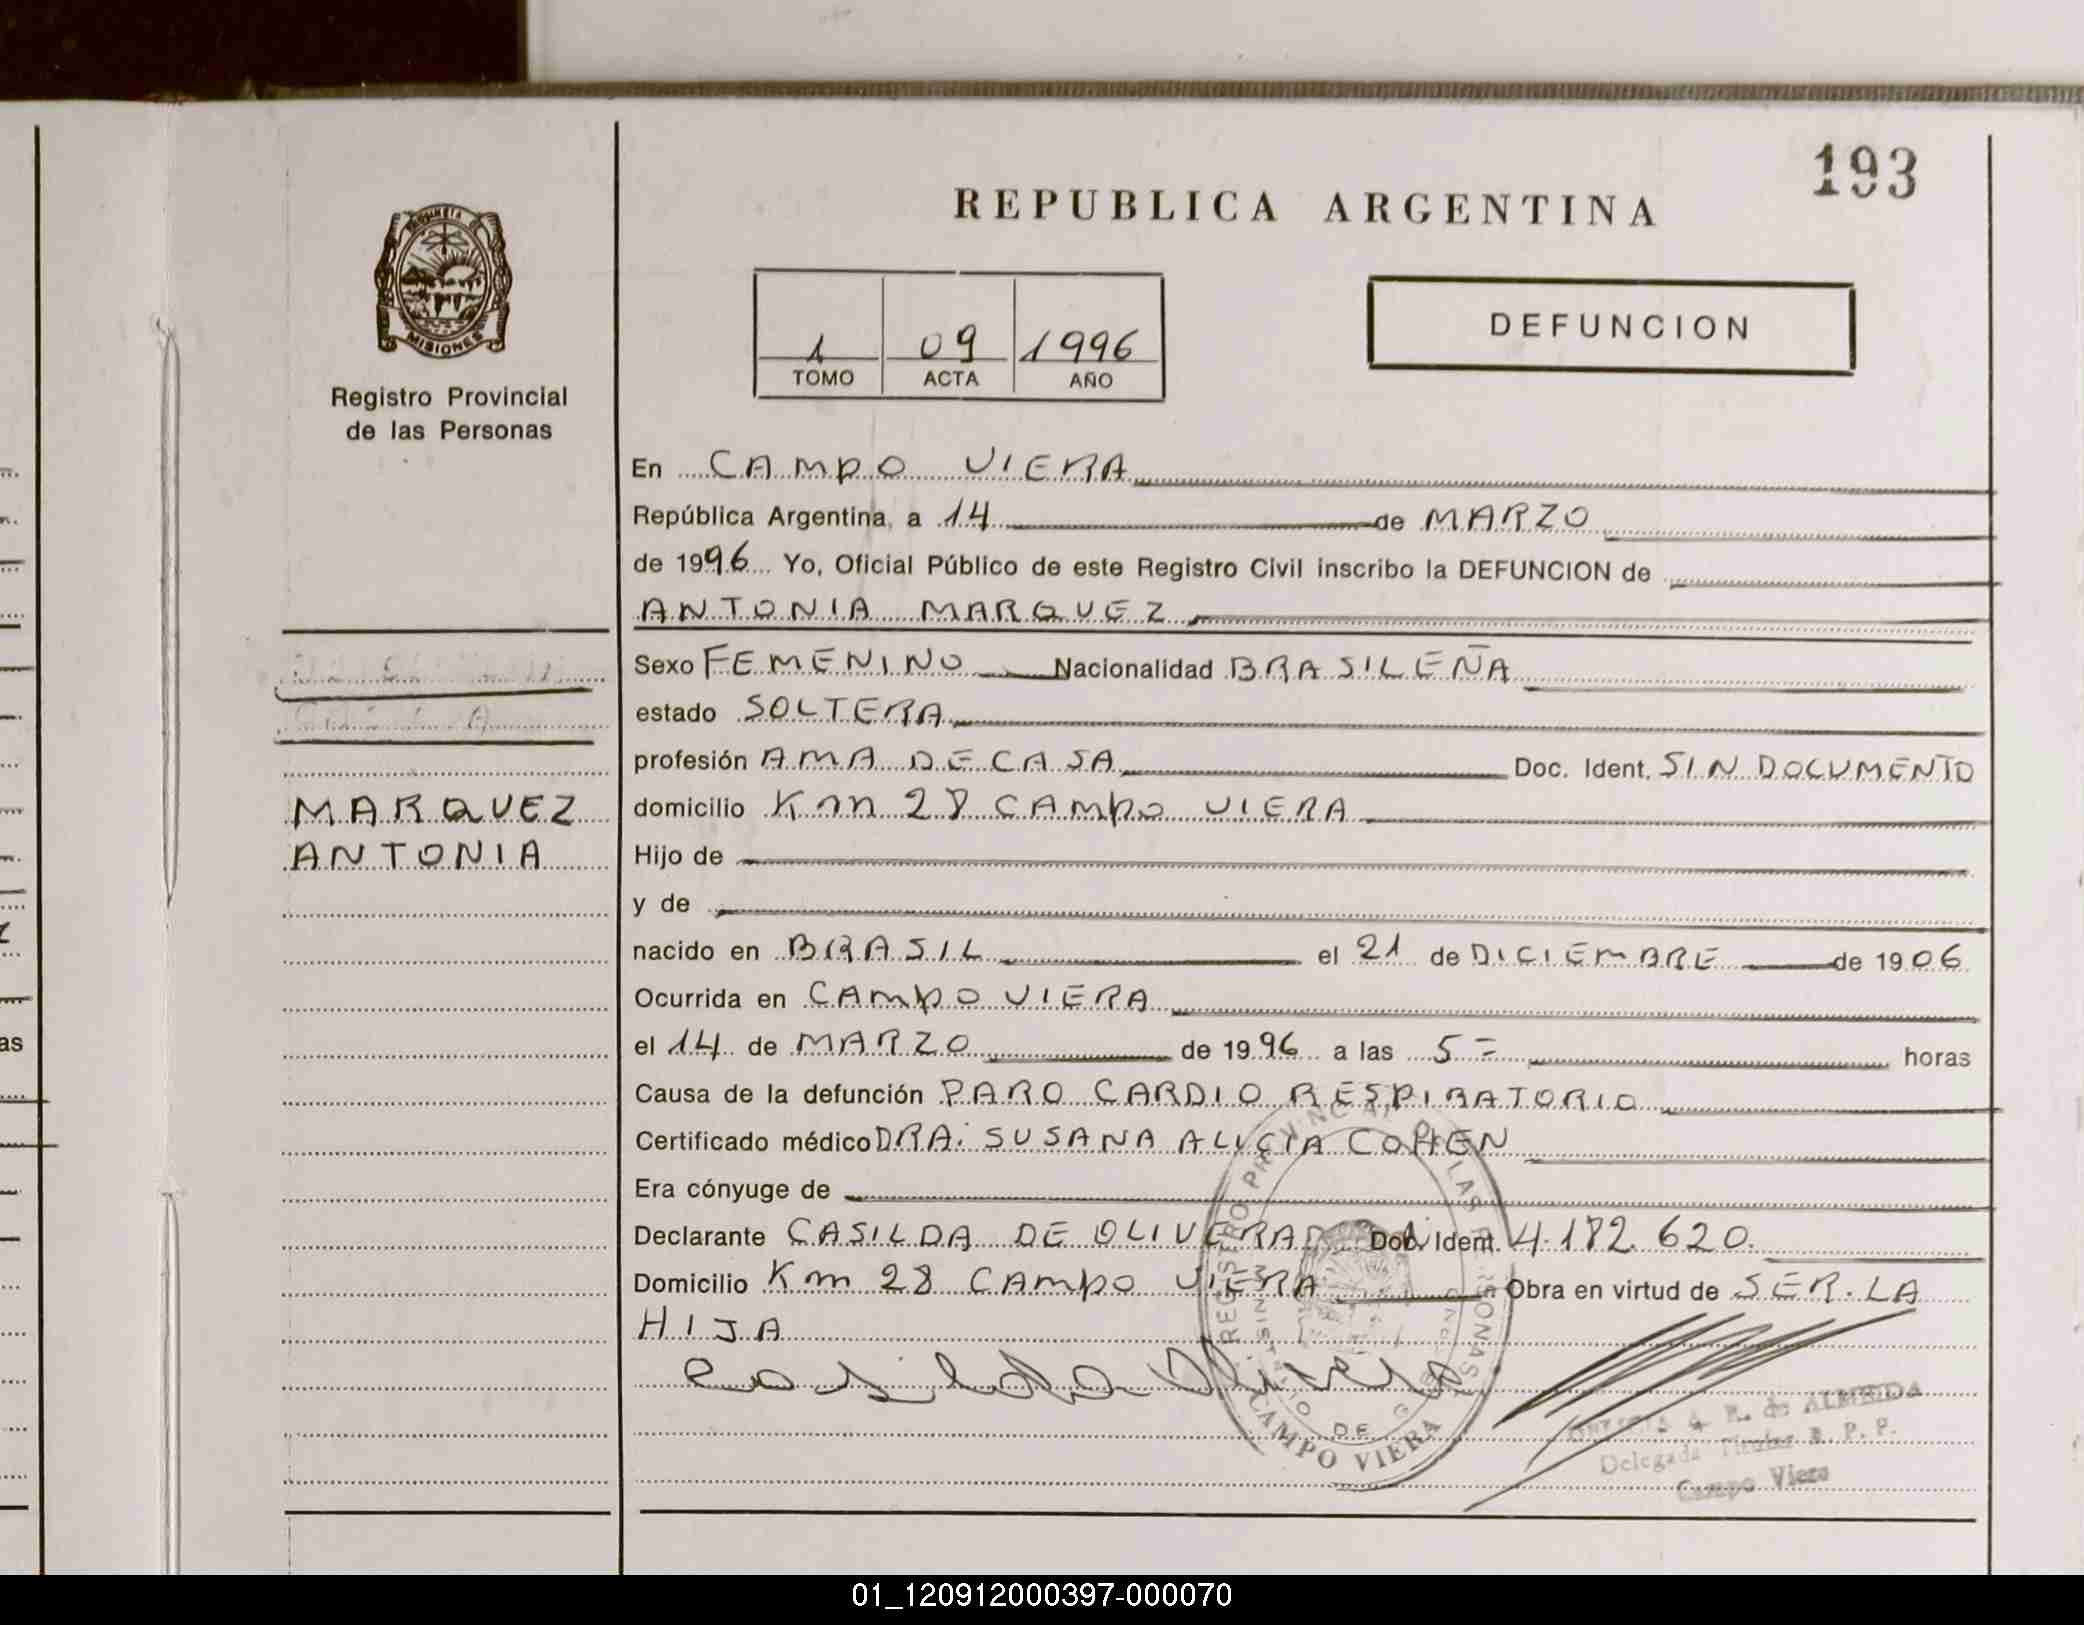 193
REPUBLICA ARGENTINA
MISIONES
Registro Provincial
de las Personas
1 09 1996
TOMO ACTA AÑO
DEFUNCION
En CAMPO VIERA
República Argentina, a 14 de MARZO
de 1996 Yo, Oficial Público de este Registro Civil inscribo la DEFUNCION de
ANTONIA MARQUEZ
Sexo FEMENINO Nacionalidad BRASILEÑA
estado SOLTERA
profesión AMA DE CASA Doc. Ident. SIN DOCUMENTO
MARQUEZ
ANTONIA
domicilio Km 28 CAMPO VIERA
Hijo de
y de
nacido en BRASIL el 21 de DICIEMBRE de 1906
Ocurrida en CAMPO VIERA
el 14 de MARZO de 1996 a las 5= horas
Causa de la defunción PARO CARDIO RESPIRATORIO
Certificado médico DRA. SUSANA ALICIA COHEN
Era cónyuge de
Declarante CASILDA DE OLIVERA Doc. Ident. 4.182.620.
Domicilio Km 28 CAMPO VIERA Obra en virtud de SER LA
HIJA
Casilda Olivera
REGISTRO PROVINCIAL DE LAS PERSONAS
CAMPO VIERA
de ALMEIDA
Delegada Titular R. P. P.
Campo Viera
as
01_120912000397-000070